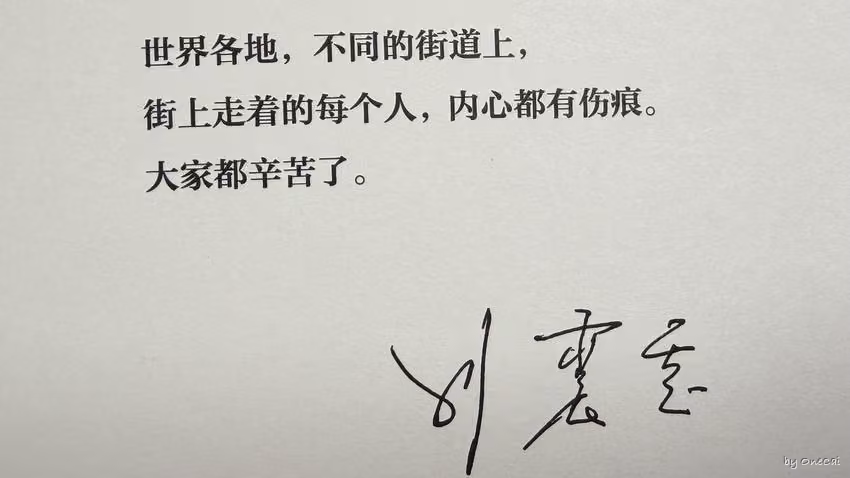 世界各地，不同的街道上，
街上走着的每个人，内心都有伤痕。
大家都辛苦了。
刘震云
by OneCai